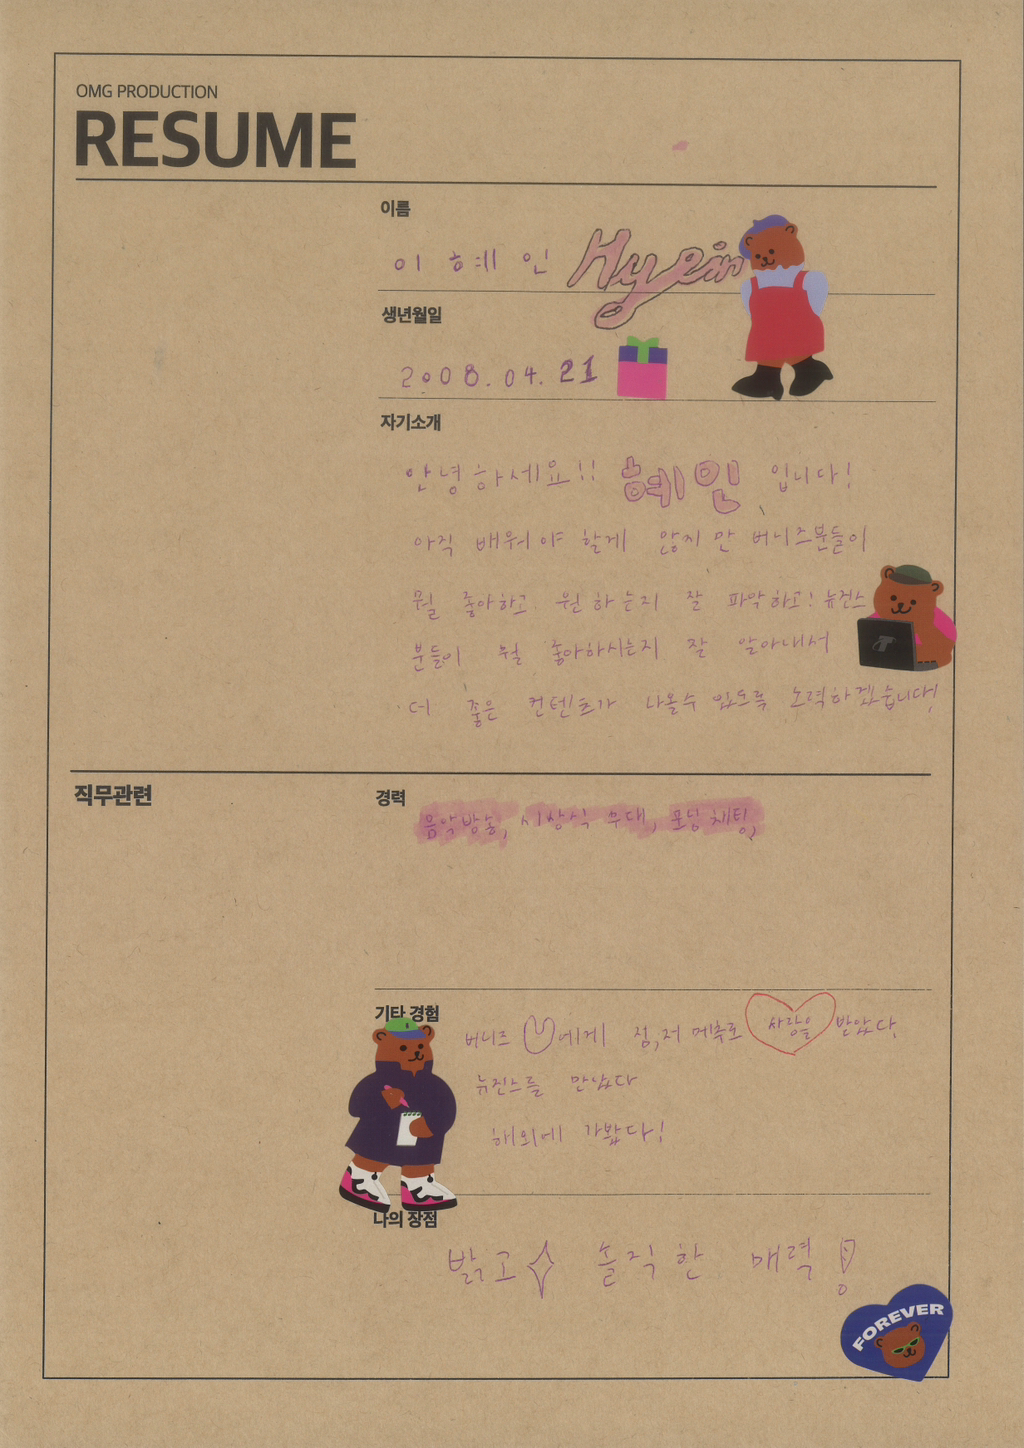 OMG PRODUCTION
RESUME
이름
이혜인 Hyein
생년월일
2008.04.21
자기소개
안녕하세요!! 혜인 입니다!
아직 배워야 할게 많지만 버니즈분들이
뭘 좋아하고 원하는지 잘 파악하고! 뉴진스
분들이 뭘 좋아하시는지 잘 알아내서
더 좋은 컨텐츠가 나올수 있도록 노력하겠습니다!
직무관련
경력
음악방송, 시상식 무대, 포닝 채팅,
기타 경험
버니즈 에게 점,저 메추로 사랑을 받았다,
뉴진스를 만났다
해외에 가봤다!
나의 장점
밝고 솔직한 매력!
FOREVER